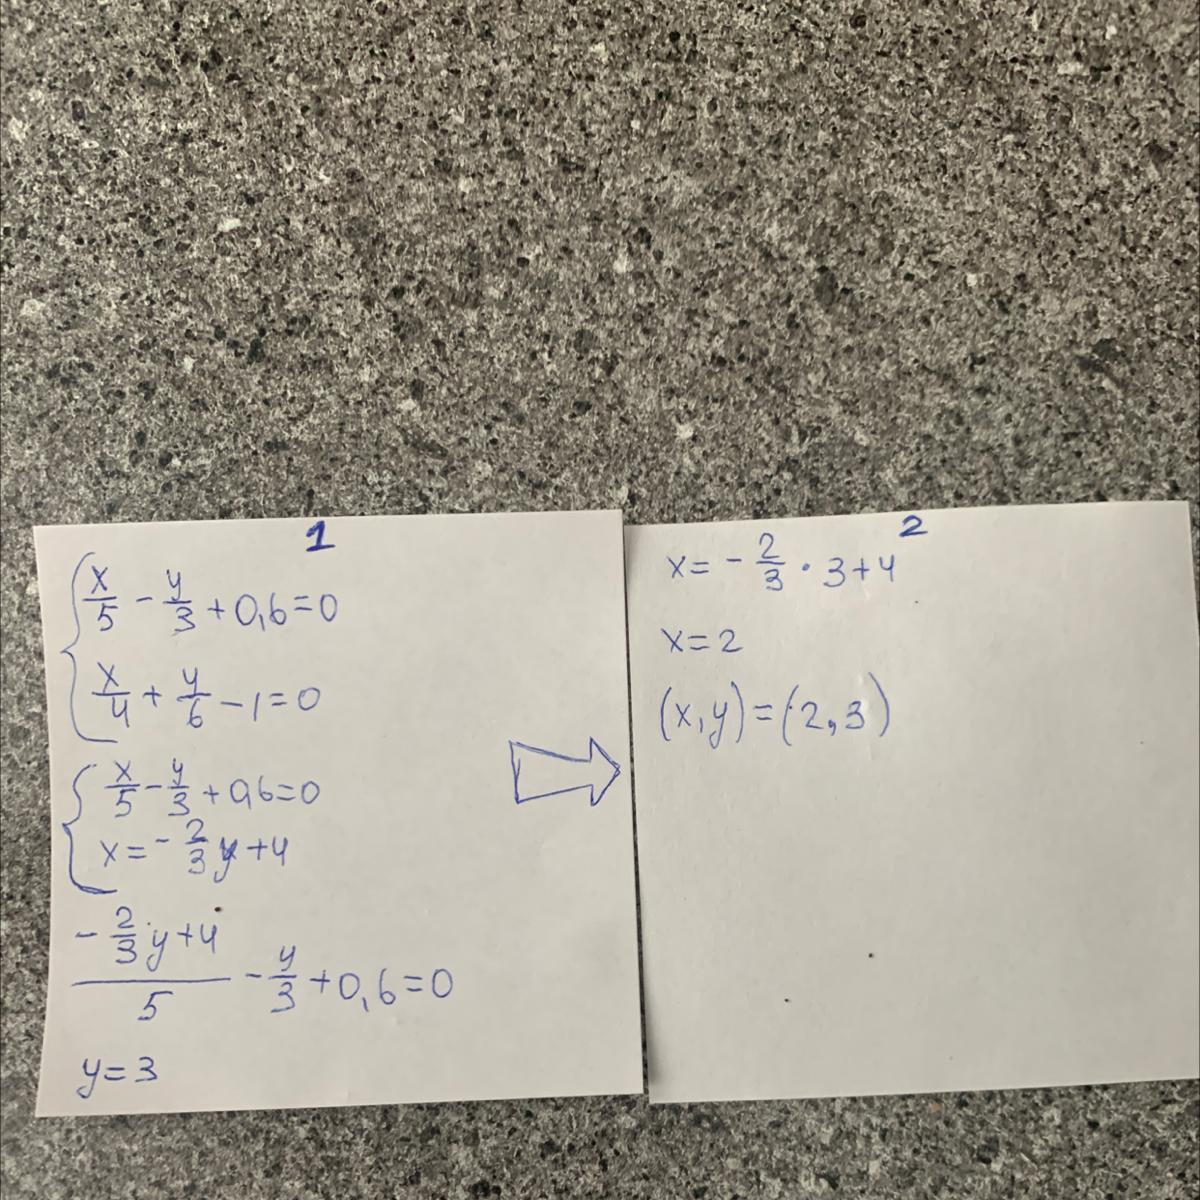 1
x/5 - y/3 + 0,6 = 0
x/4 + y/6 - 1 = 0
x/5 - y/3 + 0,6 = 0
x = - 2/3 y + 4
(- 2/3 y + 4)/5 - y/3 + 0,6 = 0
y = 3
2
x = - 2/3 · 3 + 4
x = 2
(x, y) = (2, 3)